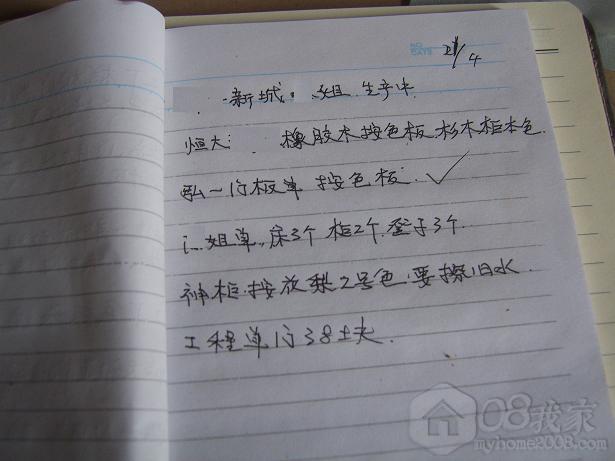 NO.
DATE 21/4
新城. 姐. 生产中
恒大: 橡胶木按色板. 杉木柜本色.
弘一的板单 按色板. ✓
姐单, 床3个 柜2个. 登子3个.
神柜. 按放梨2号色. 要擦旧水.
工程单的38
08我家
myhome2008.com